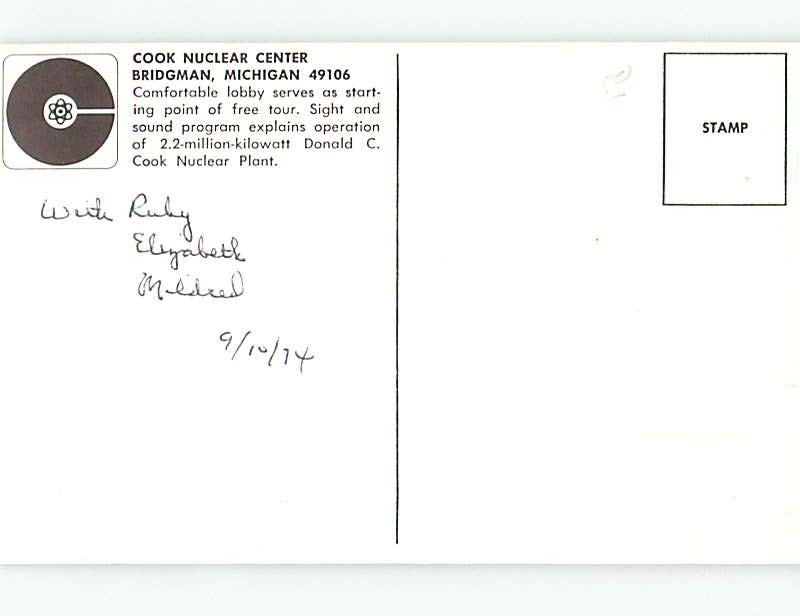 COOK NUCLEAR CENTER
BRIDGMAN, MICHIGAN 49106
Comfortable lobby serves as start-
ing point of free tour. Sight and
sound program explains operation
of 2.2-million-kilowatt Donald C.
Cook Nuclear Plant.
STAMP
With Ruby
Elizabeth
Mildred
9/10/74